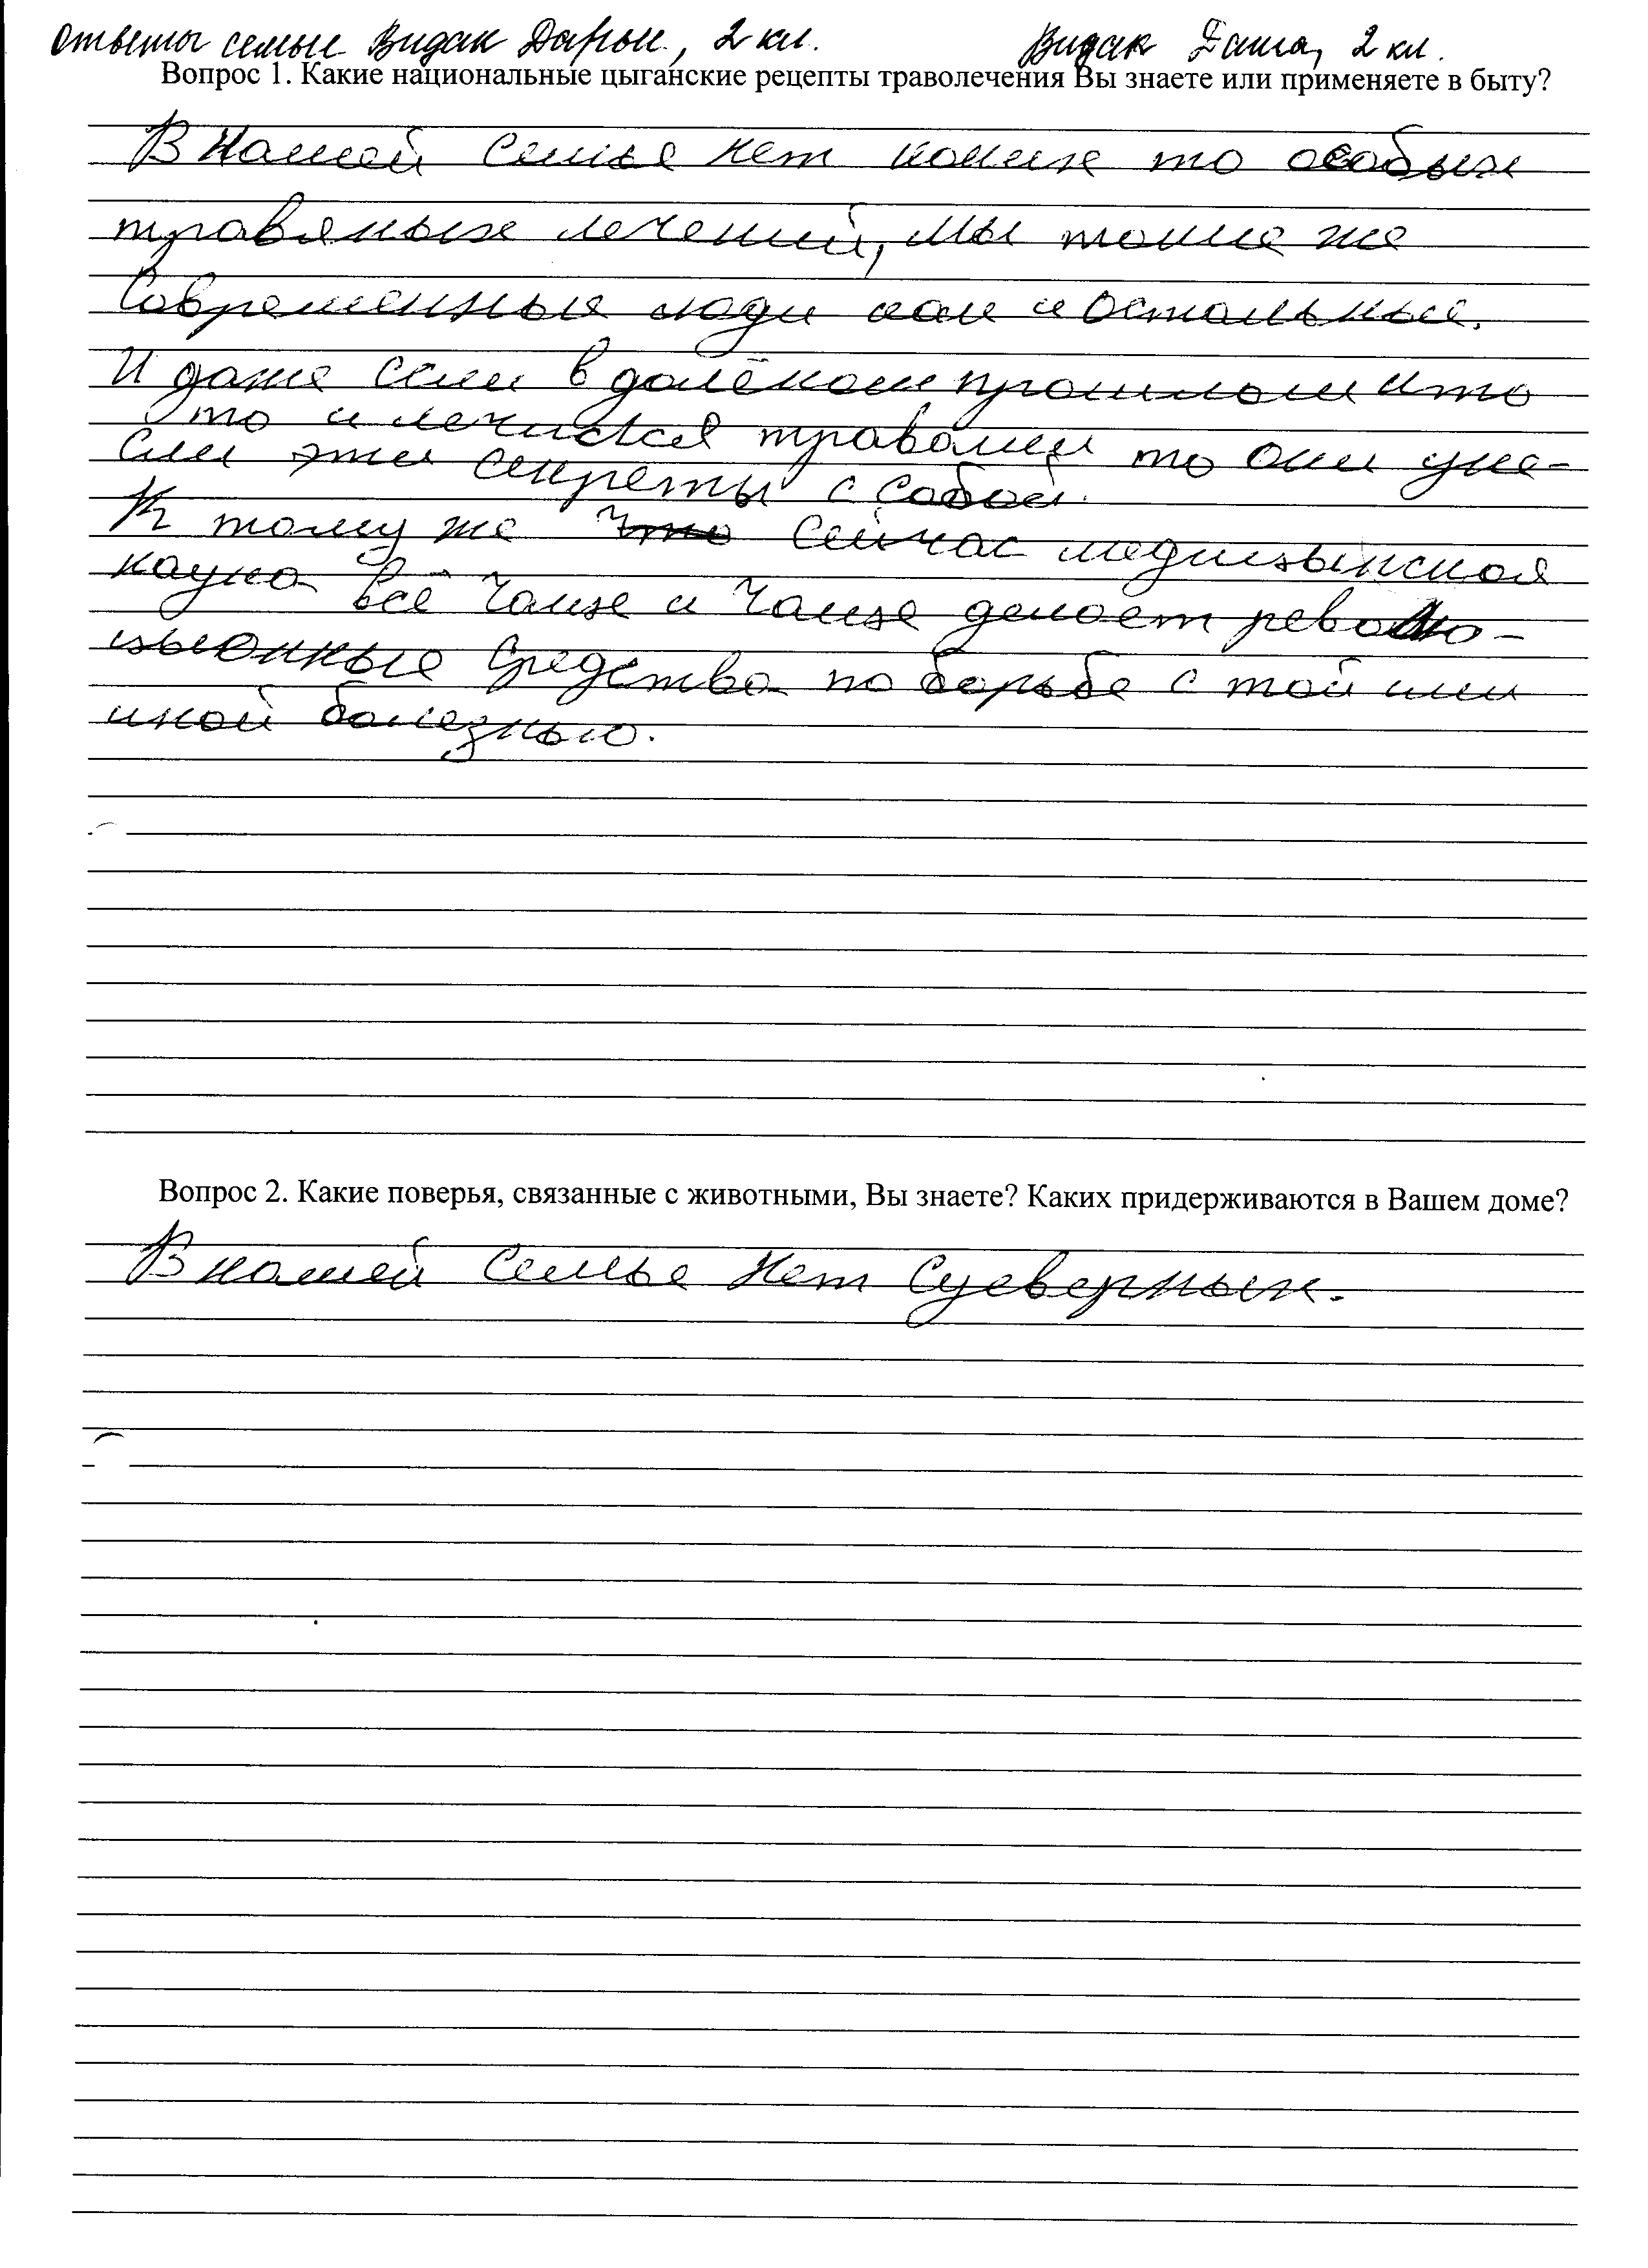 Ответы семьи Видак Дарьи, 2 кл. Видак Даша, 2 кл.
Вопрос 1. Какие национальные цыганские рецепты траволечения Вы знаете или применяете в быту?
В нашей семье нет каких то особых
травяных лечений, мы такие же
современные люди как и остальные.
И даже если в далёком прошлом кто
то и лечился травами то они уне-
сли эти секреты с собой.
К тому же что сейчас медицынская
наука всё чаще и чаще делает револю-
цыонные средства по борьбе с той или
иной болезнью.
Вопрос 2. Какие поверья, связанные с животными, Вы знаете? Каких придерживаются в Вашем доме?
В нашей семье нет суеверных.